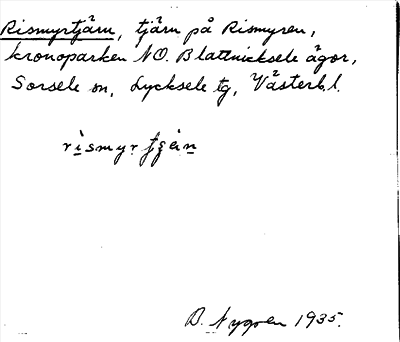 Rismyrtjärn, tjärn på Rismyren,
kronoparken NO. Blattnicksele ägor,
Sorsele sn, Lycksele tg, Västerb.l.
rismyr
B. Nygren 1935.